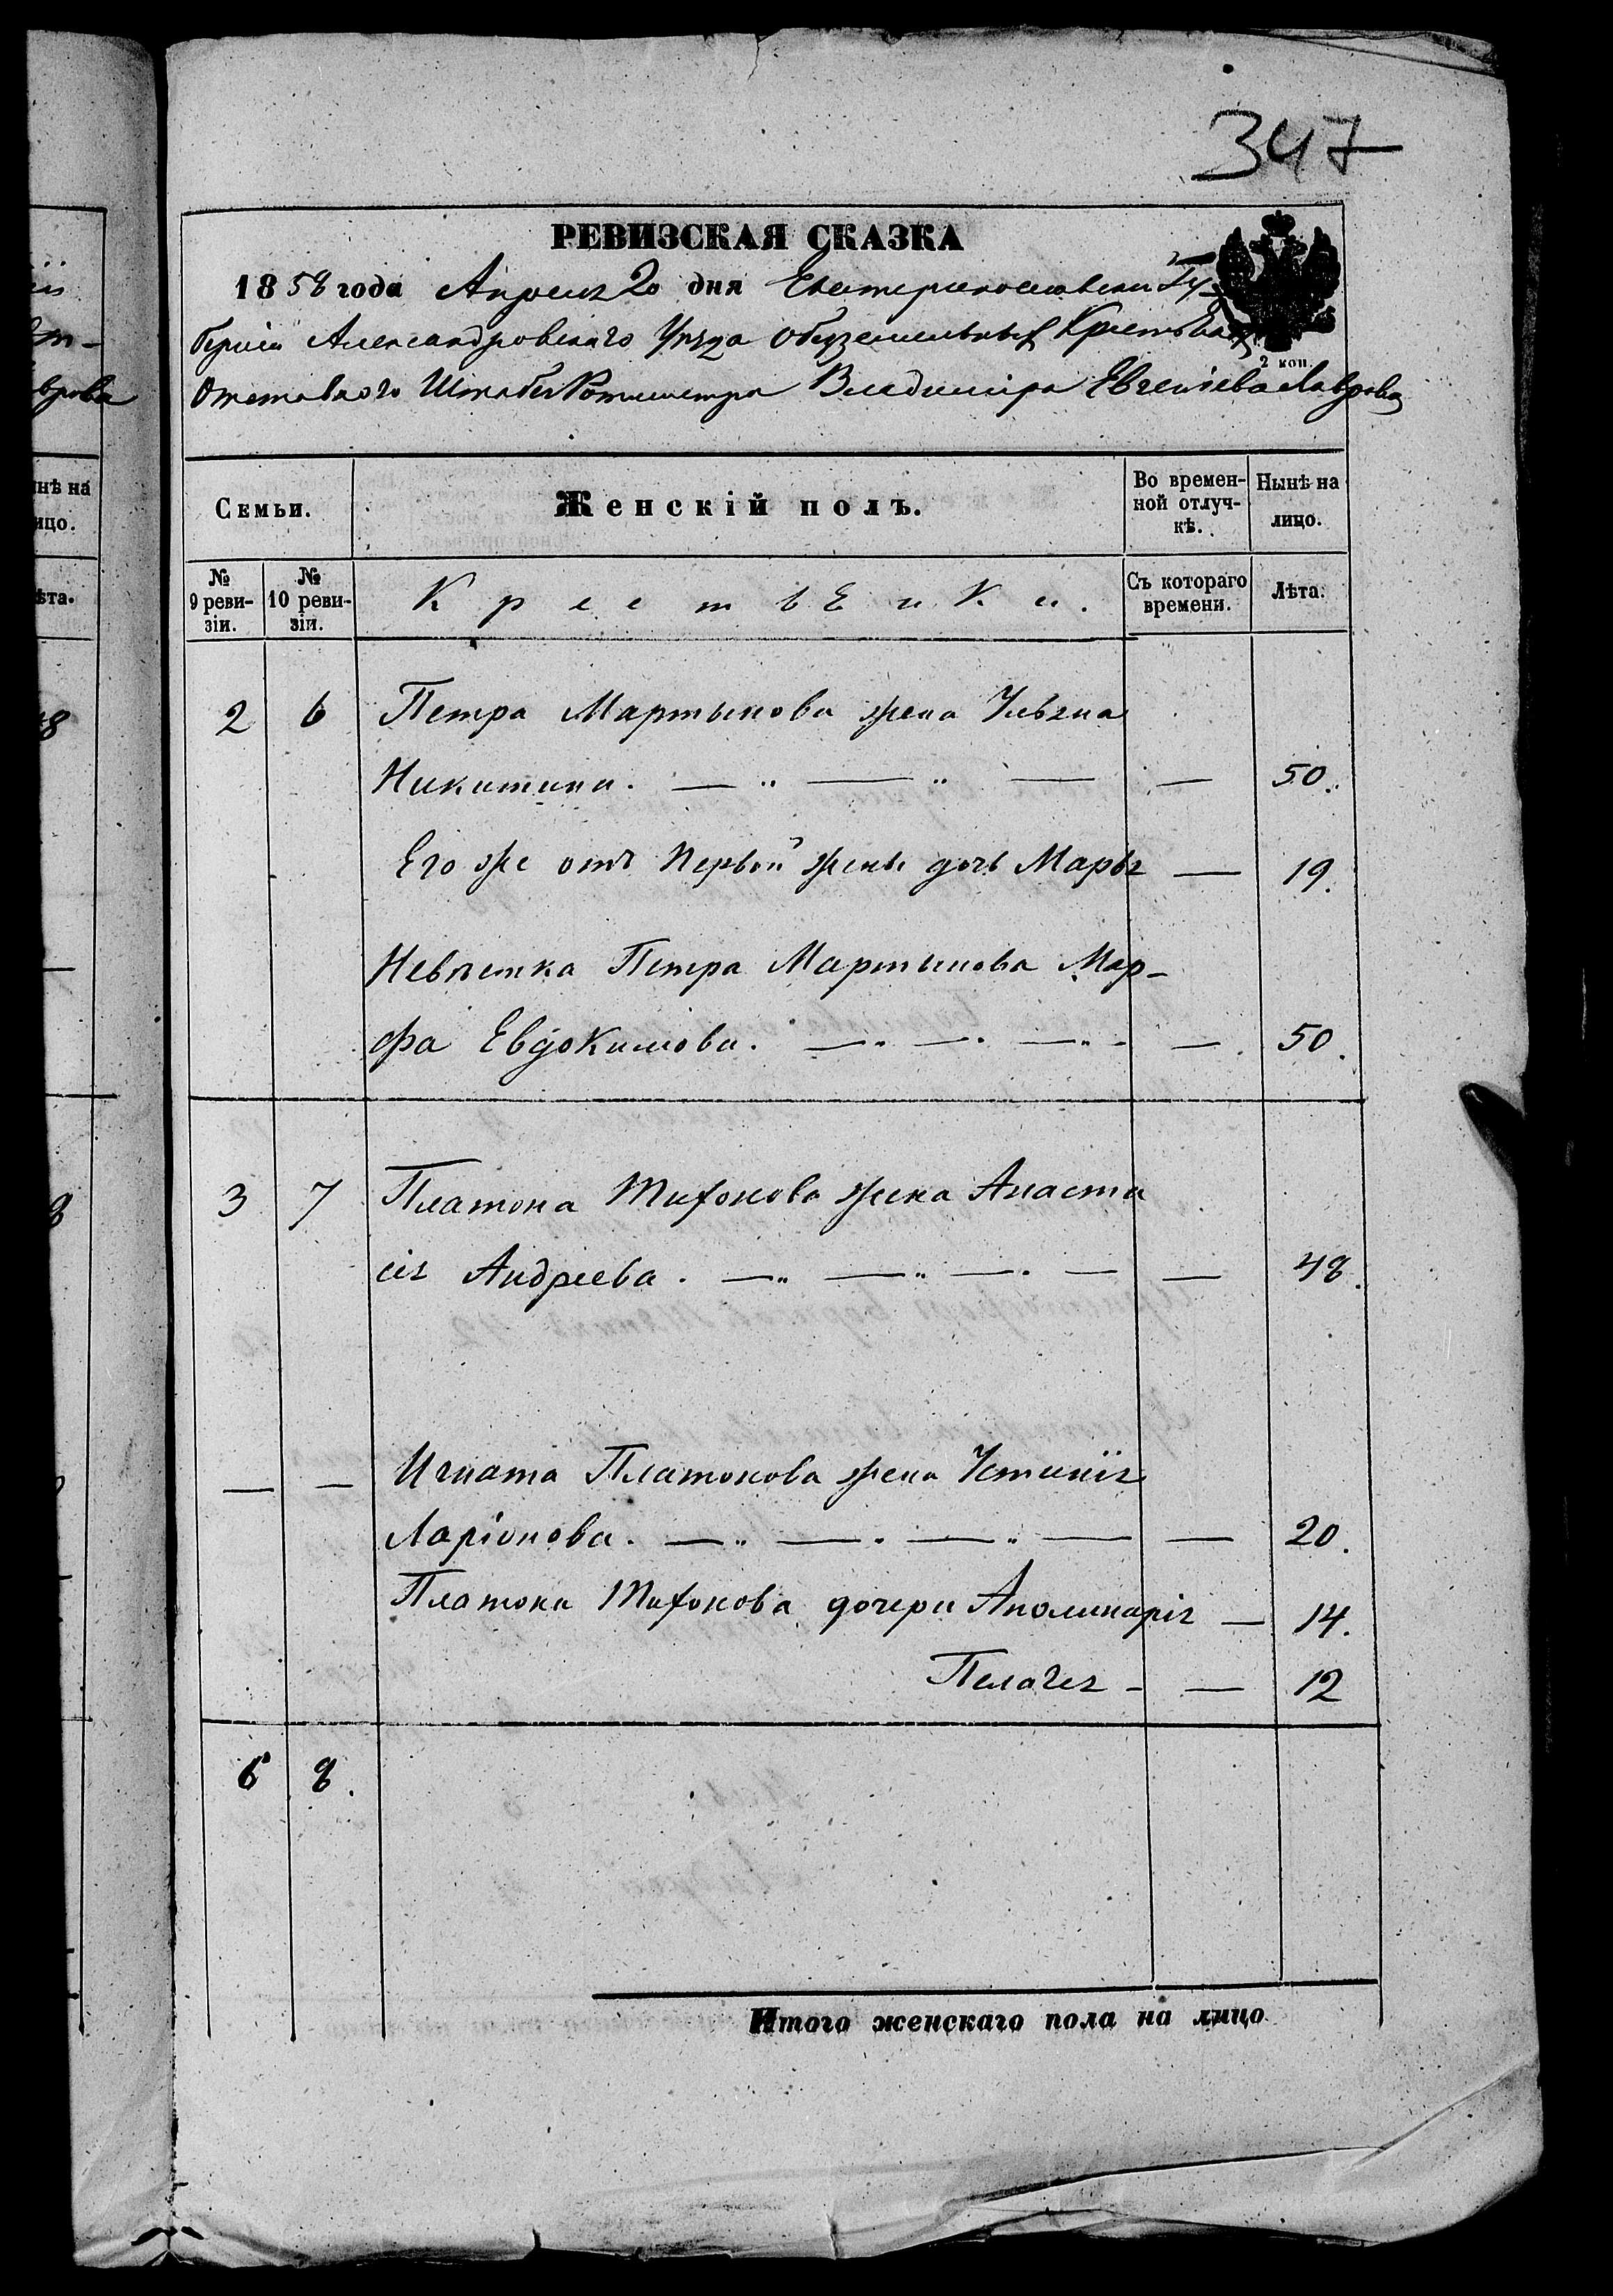 347
РЕВИЗСКАЯ СКАЗКА
1858 года Апреля 20 дня Екатеринославской Гу-
берніи Александровскаго Уѣзда Обезземельных Крестьян
Отставного Штабс Ротмистра Владиміра Евгеніева Лаврова
2 коп.
Семьи. Женскій полъ. Во времен-ной отлуч-кѣ. Нынѣ на лицо.
№ 9 реви-зіи. № 10 реви-зіи. Крестьянки. Съ котораго времени. Лѣта.
2 6 Петра Мартынова жена Ульяна
Никитина. — „ — „ — — 50.
Его же отъ Первой жены дочь Марья — 19.
Невѣстка Петра Мартынова Мар-
фа Евдокимова. — „ — . — „ - — . 50.
3 7 Платона Тихонова жена Анаста
сія Андреева. — „ — „ — . — — 48.
— — Игната Платонова жена Устинія
Ларіонова. — „ — „ — „ — — 20.
Платона Тихонова дочери Аполинарія — 14.
Пелагея - — 12
6 8.
Итого женскаго пола на лицо
врова
нѣ на
ицо.
ѣта.